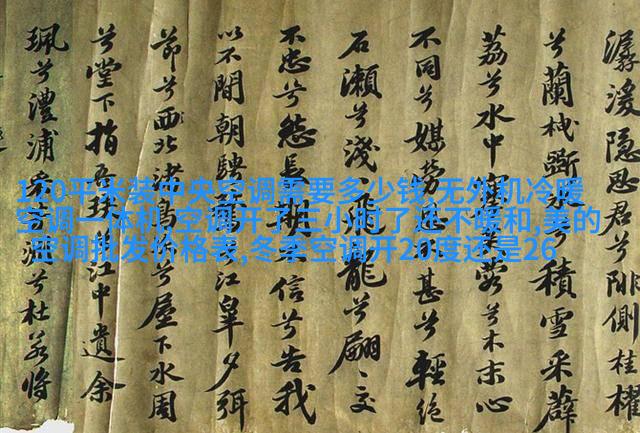 120平米装中央空调需要多少钱,无外机冷暖
空调一体机,空调开了三小时了还不暖和,美的
空调批发价格表,冬季空调开20度还是26
潺湲隱思君兮陫側桂櫂
兮蘭枻斲冰兮積雪采薜
荔兮水中搴芙蓉兮木末心
不同兮媒勞恩不甚兮輕絕
石瀨兮淺淺飛龍兮翩〻交
不忠兮怨長期不信兮告我
以不閒朝騁騖兮江皋夕弭
節兮北渚鳥兮屋下水周
兮堂下玦兮江中遺余
珮兮澧浦采兮杜若將